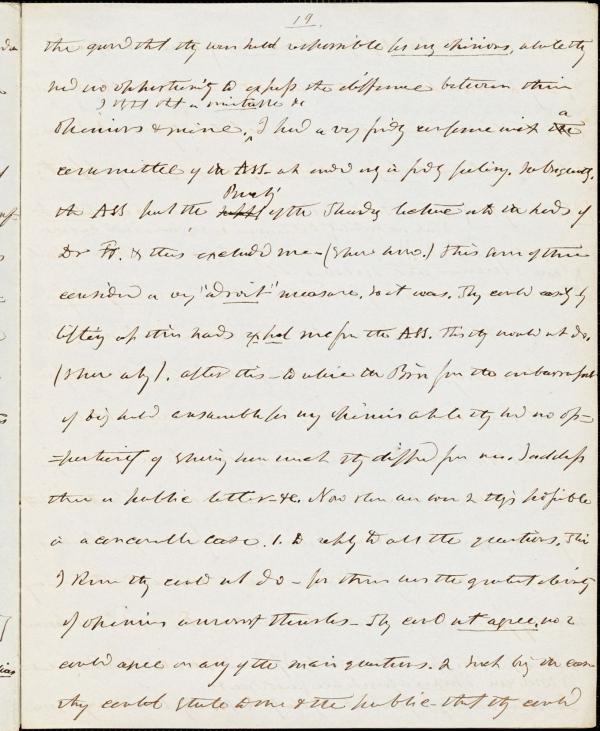 19
the ground that they were held responsible for my opinions, while they
had no opportunity to express the difference between their
opinions & mine, I had a very friendly conference with a
committee of the ASS. - it ended only in friendly feeling. Subsequently,
the ASS put the Birthy of the Thursday lecture into the hands of
Dr & thus excluded me - (Show how.) This some of them
considered a very "adroit" measure. So it was. They could easily by
lifting up their hands expel me from the ASS. This they would not do.
(Show why). After this - to relieve the Brn from the embarrassment
of being held answerable for my opinions while they had no op=
=portunity of showing how much they differed from me. I address
them a public letter &c. Now there are 2 things possible
in a conceivable case. 1. to reply to all the questions. This
I knew they could not do - for there was the greatest diversity
of opinions amongst themselves - They could not agree, no 2
could agree on any of the main questions. 2 Such being the case
they could state to me & the public - that they could